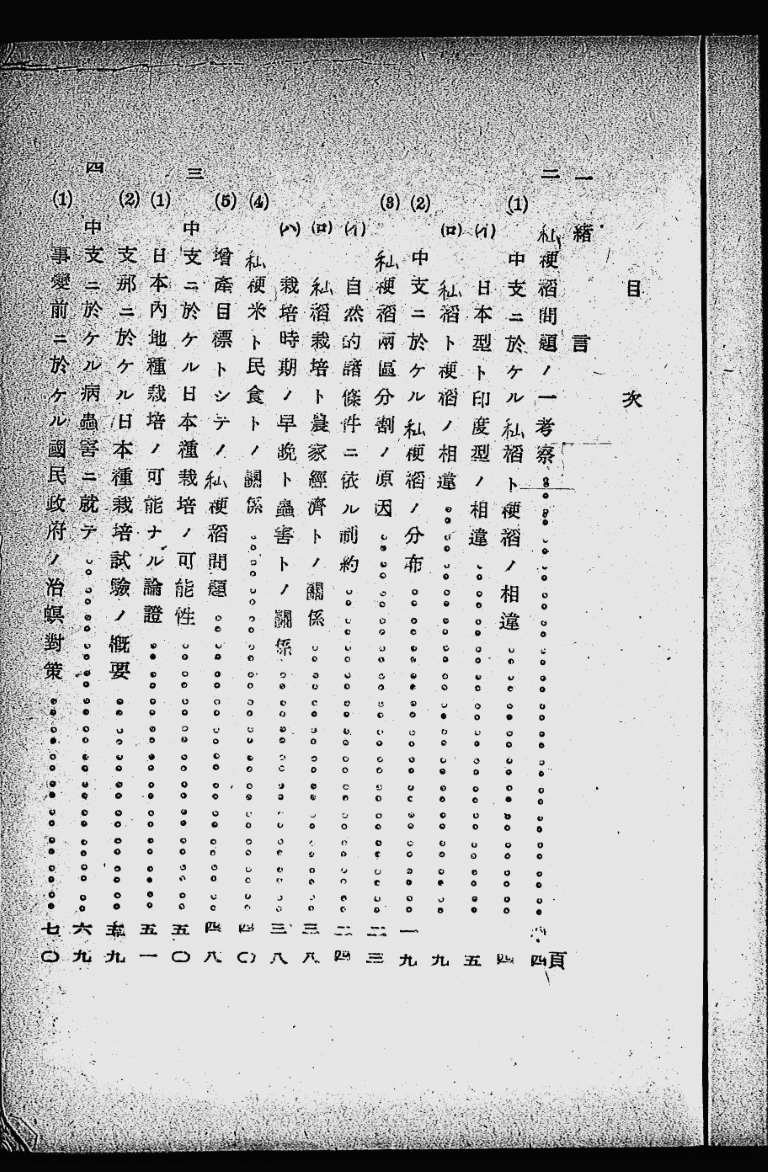 目次
一 緒言
二 秈粳稻問題ノ一考察 四頁
(1) 中支ニ於ケル秈稻ト粳稻ノ相違 四
(イ) 日本型ト印度型ノ相違 五
(ロ) 秈稻ト粳稻ノ相違 九
(2) 中支ニ於ケル秈粳稻ノ分布 一九
(3) 秈粳稻兩區分割ノ原因 二三
(イ) 自然的諸條件ニ依ル制約 二四
(ロ) 秈稻栽培ト農家經濟トノ關係 三八
(ハ) 栽培時期ノ早晩ト蟲害トノ關係 三八
(4) 秈粳米ト民食トノ關係 四〇
(5) 增產目標トシテノ秈粳稻問題 四八
三 中支ニ於ケル日本種栽培ノ可能性 五〇
(1) 日本內地種栽培ノ可能ナル論證 五一
(2) 支那ニ於ケル日本種栽培試驗ノ槪要 五九
四 中支ニ於ケル病蟲害ニ就テ 六九
(1) 事變前ニ於ケル國民政府ノ治螟對策 七〇